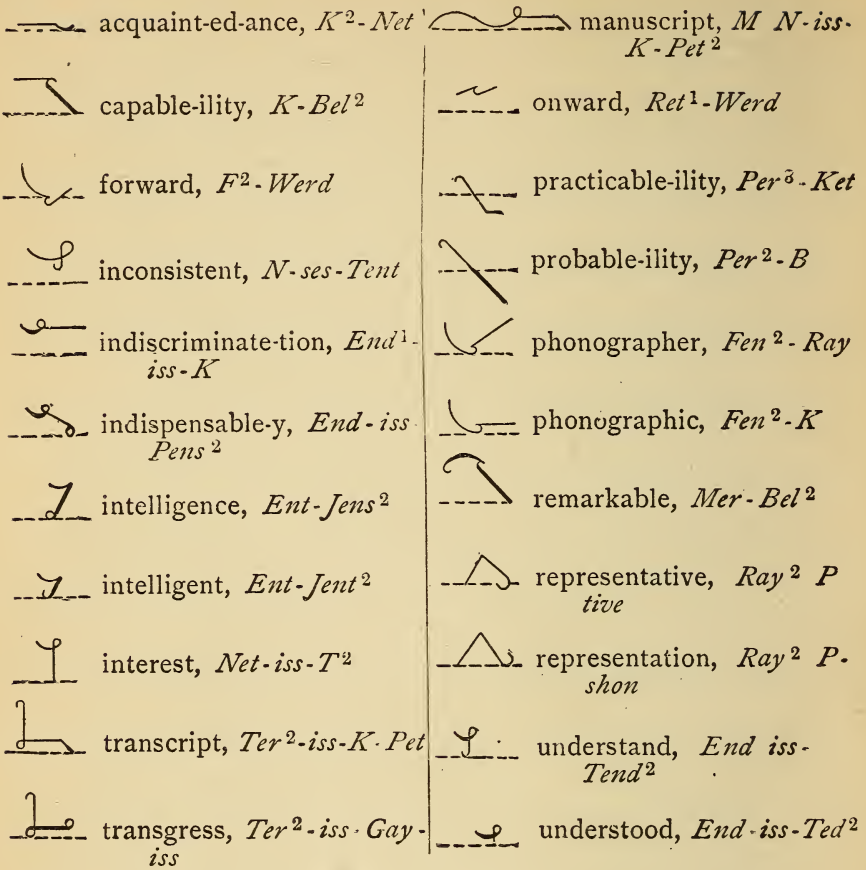 acquaint-ed-ance, K²-Net
capable-ility, K-Bel²
forward, F²-Werd
inconsistent, N-ses-Tent
indiscriminate-tion, End¹-
iss-K
indispensable-y, End-iss
Pens²
intelligence, Ent-Jens²
intelligent, Ent-Jent²
interest, Net-iss-T²
transcript, Ter²-iss-K-Pet
transgress, Ter²-iss-Gay-
iss
manuscript, M N-iss-
K-Pet²
onward, Ret¹-Werd
practicable-ility, Per³-Ket
probable-ility, Per²-B
phonographer, Fen²-Ray
phonographic, Fen²-K
remarkable, Mer-Bel²
representative, Ray² P
tive
representation, Ray² P-
shon
understand, End iss-
Tend²
understood, End-iss-Ted²